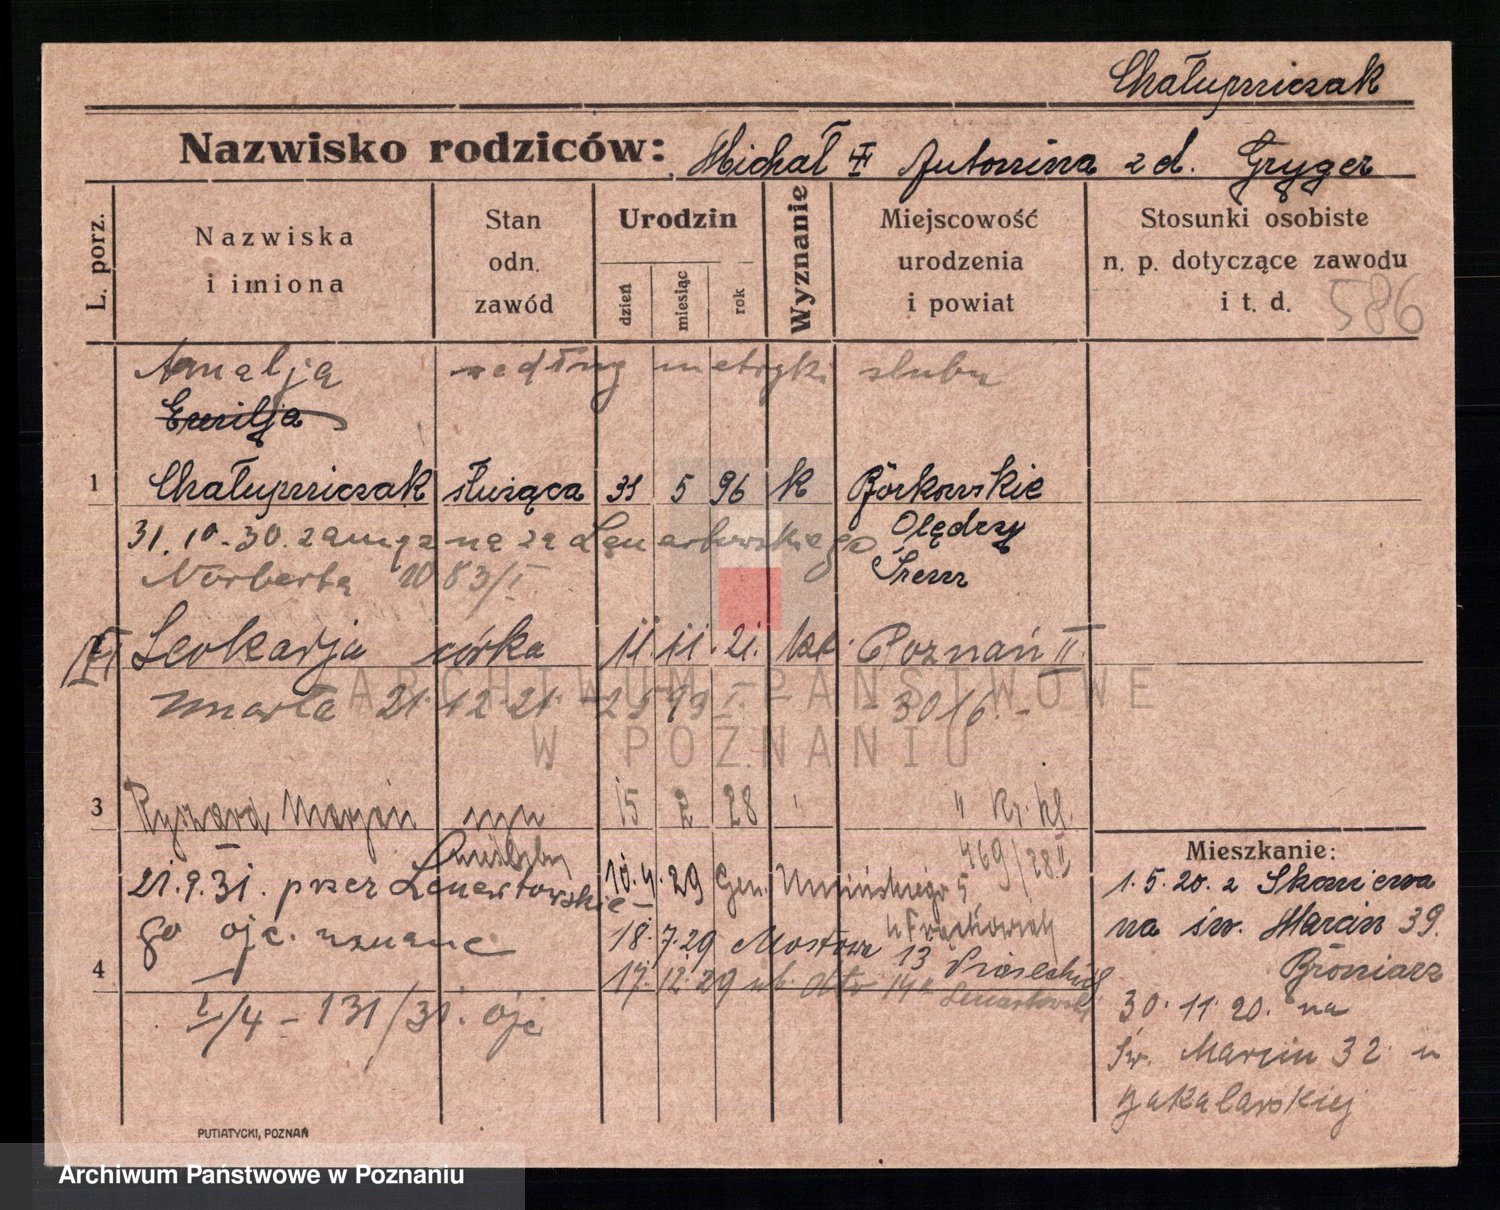 Chałupniczak
Nazwisko rodziców: Michał Antonina z d. Gryger
L. porz.
Nazwiska
i imiona
Stan
odn.
zawód
Urodzin
dzień
miesiąc
rok
Wyznanie
Miejscowość
urodzenia
i powiat
Stosunki osobiste
n. p. dotyczące zawodu
i t. d.
586
Amalja według metryki ślubu
Emilja
1 Chałupniczak służąca 31 5 96 k Borkowskie
Olędry
Śrem
31.10.30. zamężna za Lenartowskiego
Norberta
Leokadja córka 11 11 21. kat. Poznań II
zmarła 21.12.21. - 3016. -
3 Ryszard Marjan syn 15 2 28 " " Kr. kl.
469/28 II
21.9.31. przez Lenartowskie-
go ojc. uznane
10.4.29 Gen. Umińskiego 5
18.7.29 Mostowa 13
17.12.29 14a
Lenartowski
4
I/4 - 131/31. ojc
Mieszkanie:
1.5.20. z Skoniewa
na św. Marcin 39.
Broniarz
30.11.20. na
Św. Marcin 32 u
Jakalarskiej
ARCHIWUM PAŃSTWOWE
W POZNANIU
PUTIATYCKI, POZNAŃ
Archiwum Państwowe w Poznaniu